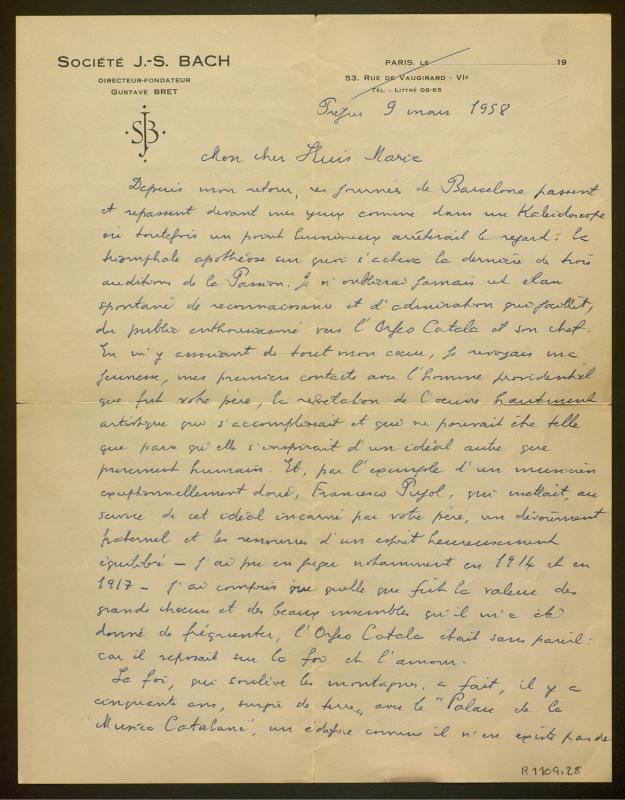 SOCIÉTÉ J.-S. BACH
DIRECTEUR-FONDATEUR
GUSTAVE BRET
SJB
PARIS, LE 19
53, RUE DE VAUGIRARD - VIe
TÉL. : LITTRÉ 09-65
Fréjus 9 mars 1958
Mon cher Lluis Maria
Depuis mon retour, ces journées de Barcelone passent
et repassent devant mes yeux comme dans un Kaleidoscope
où toutefois un point lumineux arrêterait le regard : la
triomphale apothéose sur quoi s'acheva la dernière de trois
auditions de la Passion. Je n'oublierai jamais cet élan
spontané de reconnaissance et d'admiration qui jaillit,
du public enthousiasmé vers l'Orfeo Catala et son chef.
En m'y associant de tout mon cœur, je revoyais ma
jeunesse, mes premiers contacts avec l'homme providentiel
que fut votre père, la révélation de l'œuvre hautement
artistique qui s'accomplissait et qui ne pouvait être telle
que parce qu'elle s'inspirait d'un idéal autre que
purement humain. Et, par l'exemple d'un musicien
exceptionnellement doué, Francesco Pujol, qui mettait, au
service de cet idéal incarné par votre père, un dévouement
fraternel et les ressources d'un esprit heureusement
équilibré — j'ai pu en juger notamment en 1914 et en
1917 — j'ai compris que quelle que fût la valeur des
grands chœurs et des beaux ensembles qu'il m'a été
donné de fréquenter, l'Orfeo Catala était sans pareil :
car il reposait sur la foi et l'amour.
La foi, qui soulève les montagnes, a fait, il y a
cinquante ans, surgir de terre, avec le "Palau de la
Musica Catalana", un édifice comme il n'en existe pas de
R1109,28